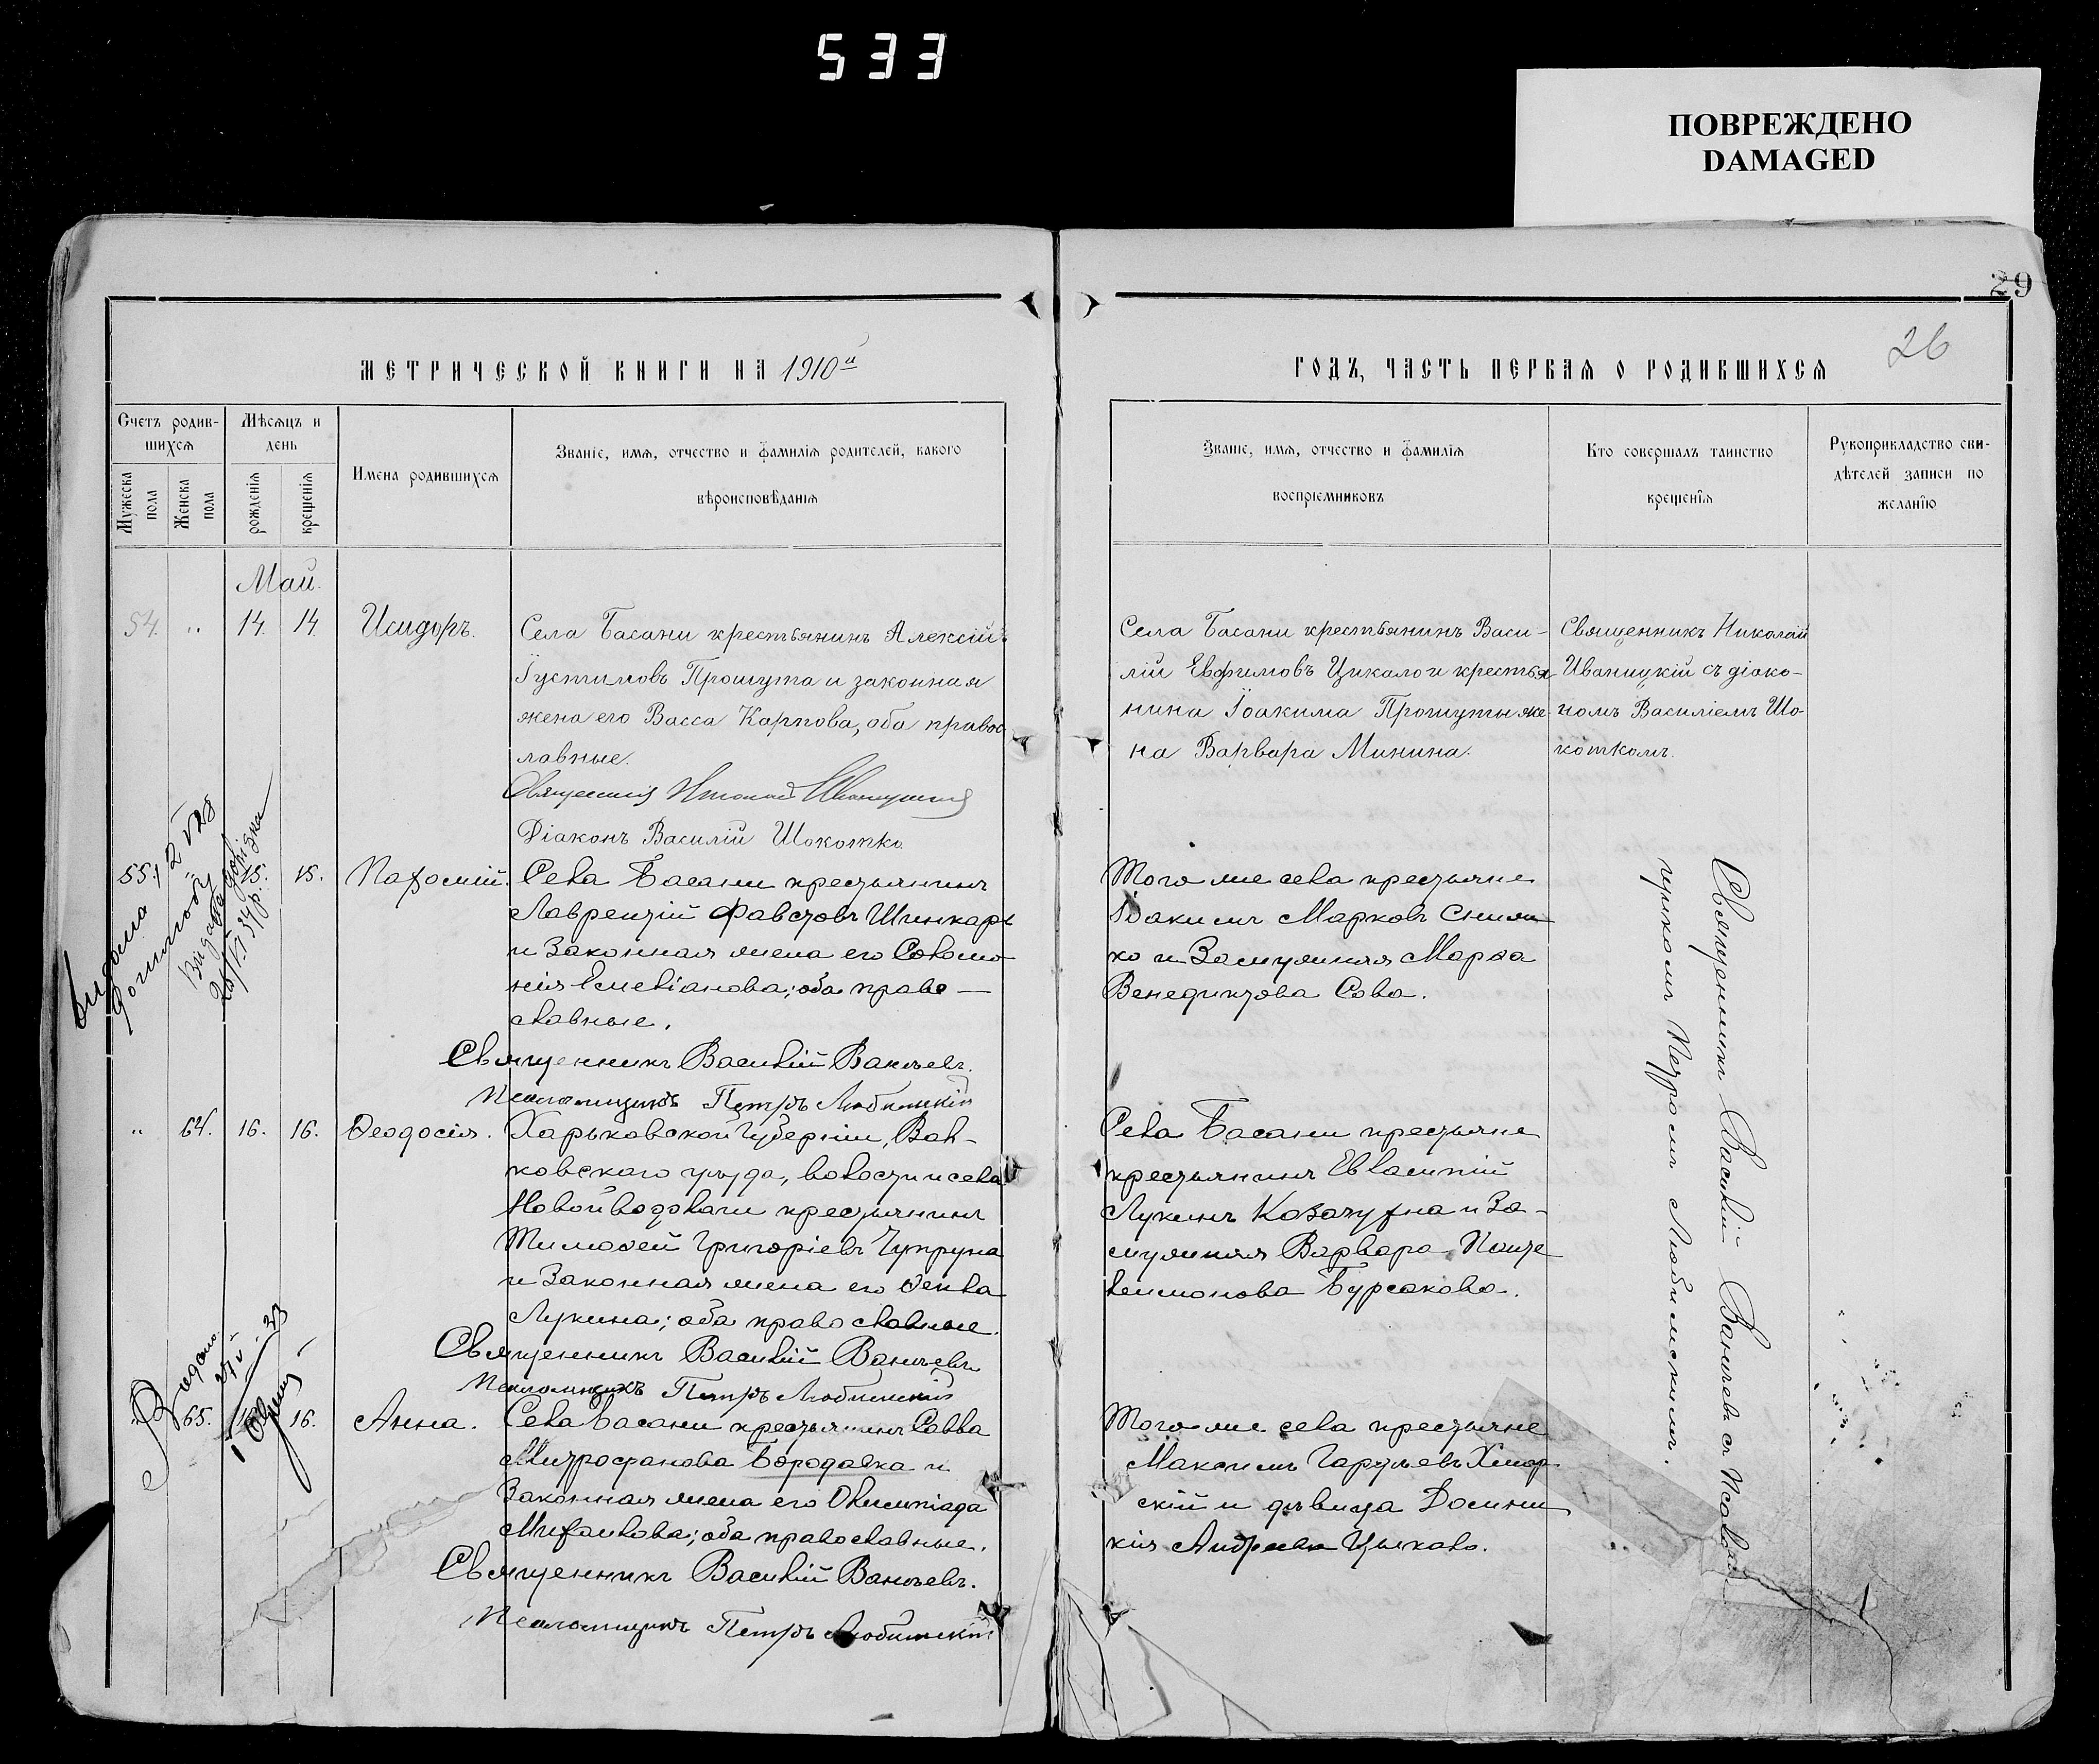 533
ПОВРЕЖДЕНО
DAMAGED
29
26
МЕТРИЧЕСКОЙ КНИГИ НА 1910й
ГОДЪ, ЧАСТЬ ПЕРВАЯ О РОДИВШИХСЯ
Счетъ родив-
шихся
Мужеска пола
Женска пола
Мѣсяцъ и
день
рожденія
крещенія
Имена родившихся
Званіе, имя, отчество и фамилія родителей, какого
вѣроисповѣданія
Званіе, имя, отчество и фамилія
воспріемниковъ
Кто совершалъ таинство
крещенія
Рукоприкладство сви-
дѣтелей записи по
желанію
Май.
54. " 14. 14. Исидоръ.
Села Басани крестьянинъ Алексій
Іустиновъ Прошута и законная
жена его Васса Карпова, оба правос
лавные.
Священникъ Николай Иваницкій
Діаконъ Василій Шокотко
Села Басани крестьянинъ Васи-
лій Евфимовъ Цикало и крестья-
нина Іоакима Прошуты же-
на Варвара Минина.
Священникъ Николай
Иваницкій съ діако-
номъ Василіемъ Шо-
коткомъ.
55. " 15. 15. Пахомій.
Села Басани крестьянинъ
Лаврентій Фавстовъ Шинкарь
и законная жена его Соломо
нія Емеліанова; оба право-
славные.
Священникъ Василій Ваничевъ.
Псаломщикъ Петръ Любимскій
Того же села крестьяне
Іоакимъ Марковъ
ко и замужняя Марѳа
Венедиктова Сова.
" 64. 16. 16. Ѳеодосія.
Харьковской губерніи, Вал-
ковскаго уѣзда, волости и села
Новой Водолаги крестьянинъ
Тимоѳей Григоріевъ Чупруна
и законная жена его Ѳекла
Лукина; оба православные.
Священникъ Василій Ваничевъ
Псаломщикъ Петръ Любимскій
Села Басани крестьяне
крестьянинъ Евлампій
Лукинъ и за-
мужняя Варвара Панте
леимонова Бурсакова.
65. 16. Анна.
Села Басани крестьянинъ Савва
Митрофанова Бородавка и
законная жена его Олимпіада
Михаилова; оба православные.
Священникъ Василій Ваничевъ.
Псаломщикъ Петръ Любимскій
Того же села крестьяне
Максимъ
скій и дѣвица Домни
кія Андреева Цыкало.
Священникъ Василій Ваничевъ съ Псалом
щикомъ Петромъ Любимскимъ.